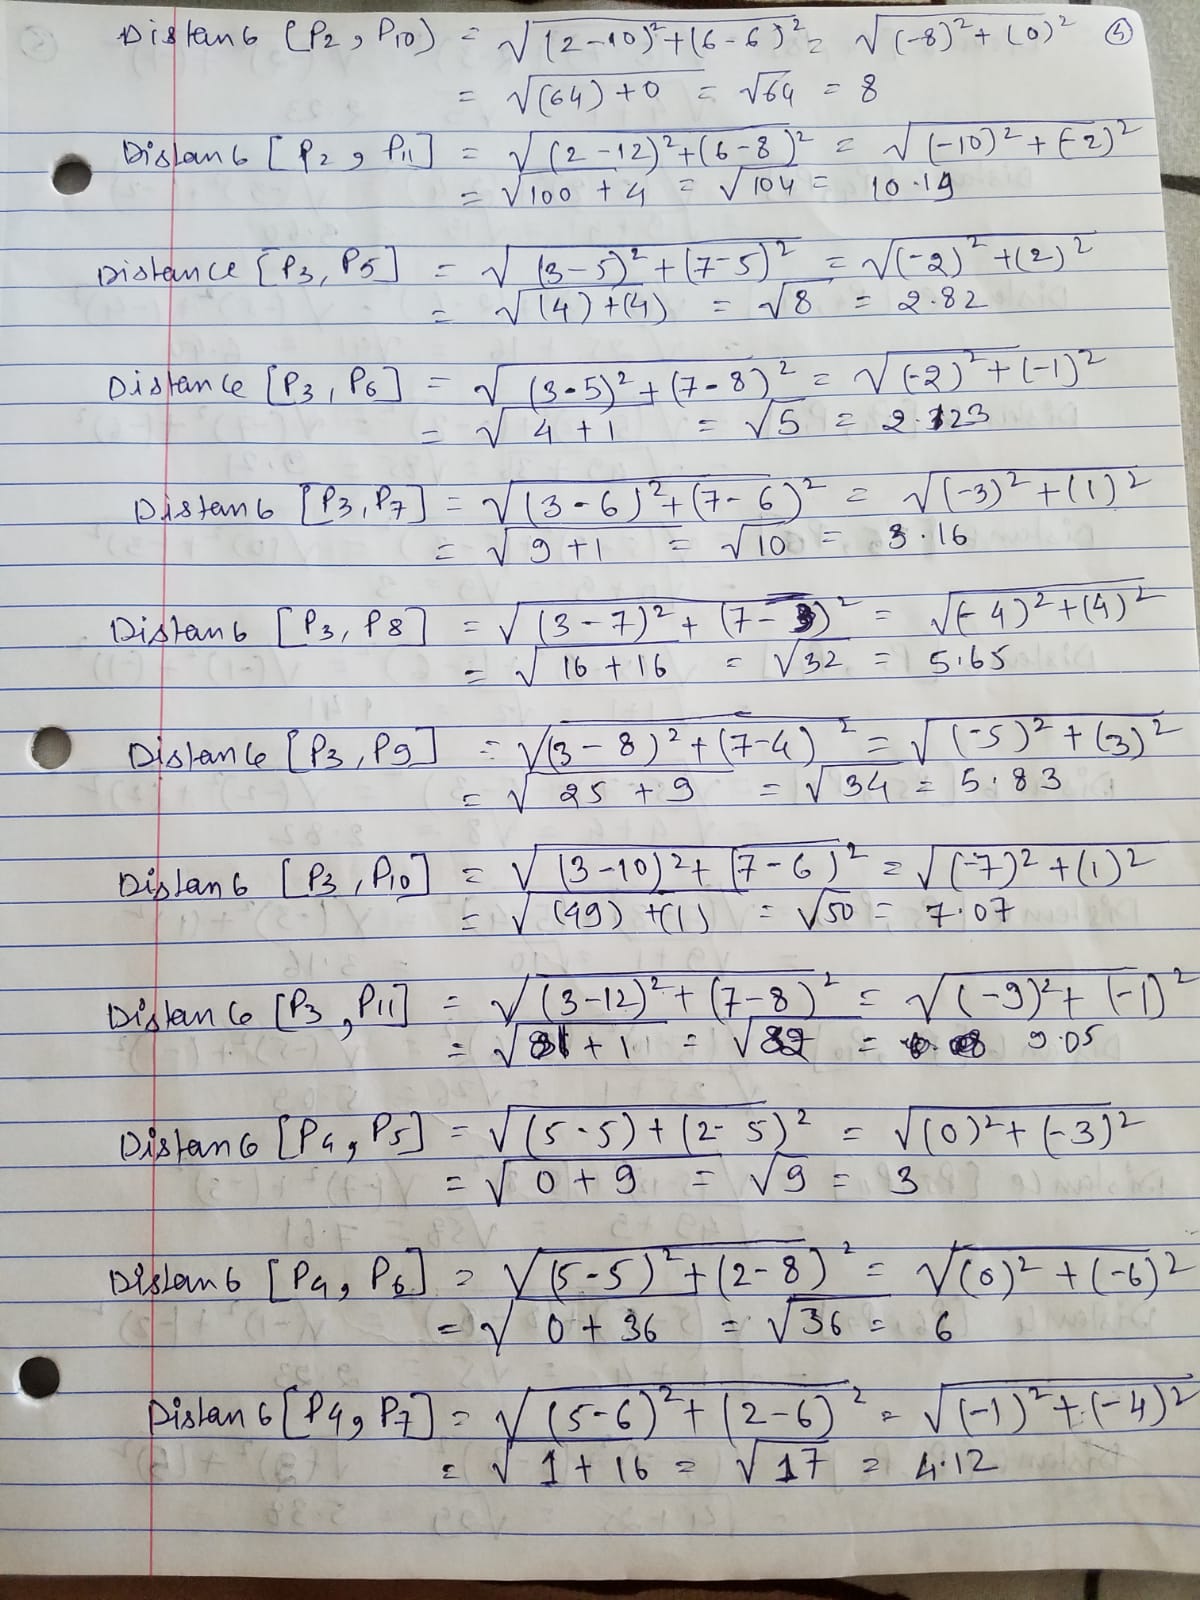 Distance (P2, P10) = √(2-10)²+(6-6)² = √(-8)²+(0)² 5
= √(64)+0 = √64 = 8
Distance [P2, P11] = √(2-12)²+(6-8)² = √(-10)²+(-2)²
= √100+4 = √104 = 10.19
Distance [P3, P5] = √(3-5)²+(7-5)² = √(-2)²+(2)²
= √(4)+(4) = √8 = 2.82
Distance [P3, P6] = √(3-5)²+(7-8)² = √(-2)²+(-1)²
= √4+1 = √5 = 2.23
Distance [P3, P7] = √(3-6)²+(7-6)² = √(-3)²+(1)²
= √9+1 = √10 = 3.16
Distance [P3, P8] = √(3-7)²+(7-3)² = √(-4)²+(4)²
= √16+16 = √32 = 5.65
Distance [P3, P9] = √(3-8)²+(7-4)² = √(-5)²+(3)²
= √25+9 = √34 = 5.83
Distance [P3, P10] = √(3-10)²+(7-6)² = √(-7)²+(1)²
= √(49)+(1) = √50 = 7.07
Distance [P3, P11] = √(3-12)²+(7-8)² = √(-9)²+(-1)²
= √81+1 = √82 = 9.05
Distance [P4, P5] = √(5-5)+(2-5)² = √(0)²+(-3)²
= √0+9 = √9 = 3
Distance [P4, P6] = √(5-5)²+(2-8)² = √(0)²+(-6)²
= √0+36 = √36 = 6
Distance [P4, P7] = √(5-6)²+(2-6)² = √(-1)²+(-4)²
= √1+16 = √17 = 4.12